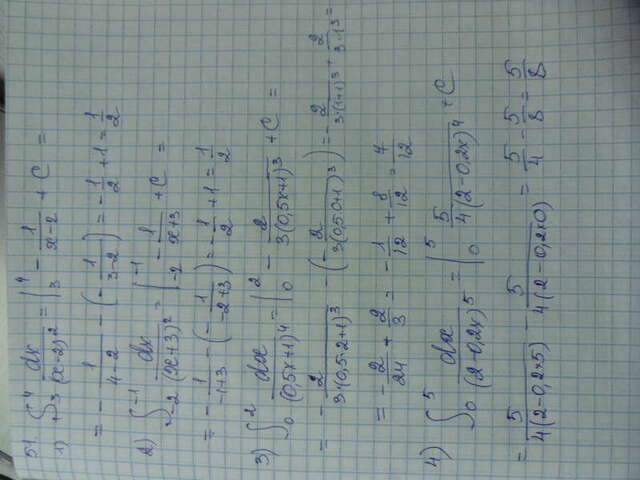 51.
1) ∫₃⁴ dx/(x-2)² = |₃⁴ - 1/(x-2) + C =
= - 1/(4-2) - (- 1/(3-2)) = - 1/2 + 1 = 1/2
2) ∫₋₂⁻¹ dx/(x+3)² = |₋₂⁻¹ - 1/(x+3) + C =
= - 1/(-1+3) - (- 1/(-2+3)) = - 1/2 + 1 = 1/2
3) ∫₀² dx/(0,5x+1)⁴ = |₀² - 2/(3(0,5x+1)³) + C =
= - 2/(3·(0,5·2+1)³) - (- 2/(3(0,5·0+1)³)) = - 2/(3·(1+1)³) + 2/(3·1³) =
= - 2/24 + 2/3 = - 1/12 + 8/12 = 7/12
4) ∫₀⁵ dx/(2-0,2x)⁵ = |₀⁵ 5/(4(2-0,2x)⁴) + C
= 5/(4(2-0,2×5)) - 5/(4(2-0,2×0)) = 5/4 - 5/8 = 5/8